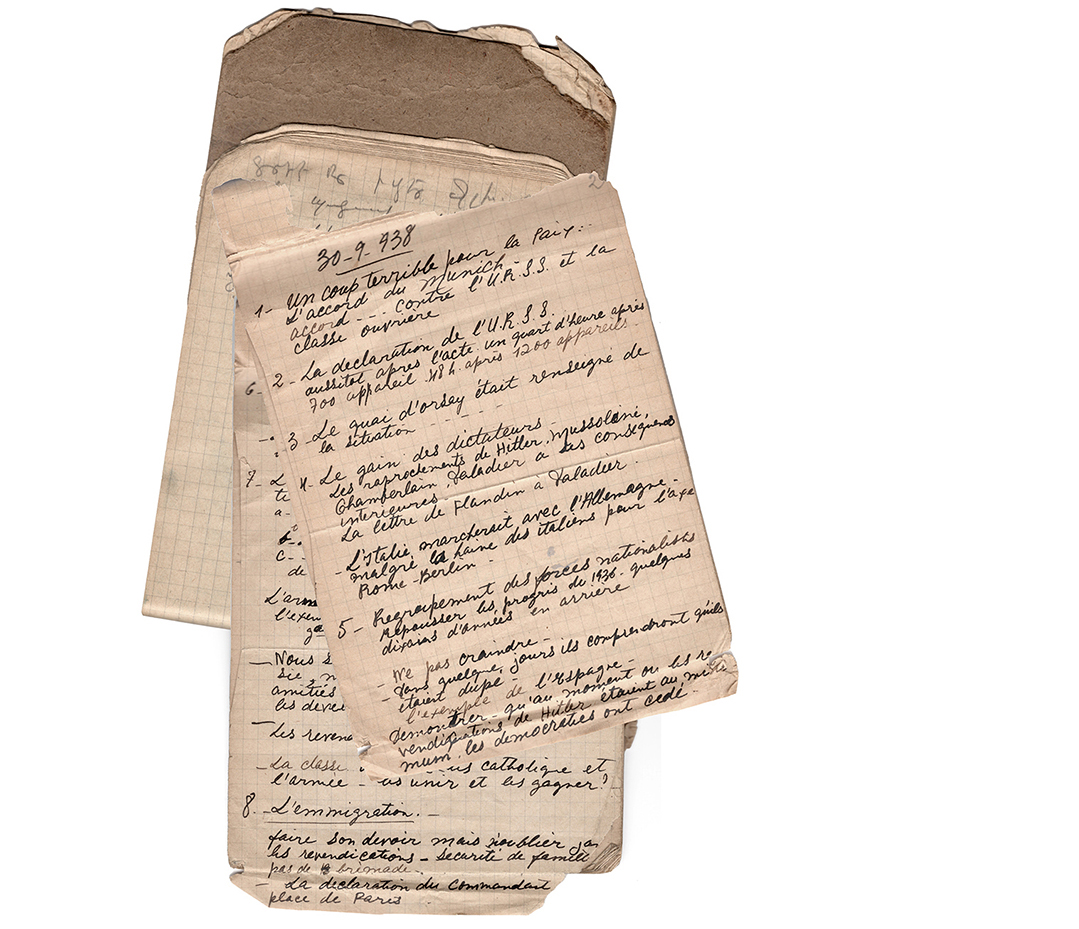 2
30-9-938
1- Un coup terrible pour la Paix:-
L'accord du Munich -
accord --- contre l'U.R.S.S. et la
classe ouvrière
2- La declaration de l'U.R.S.S.
aussitot après l'acte un quart d'heure après
700 appareil 48 h. après 1200 appareils.
3- Le quai d'orsay était renseigné de
la situation ----
4- Le gain des dictateurs -
Les raprochements de Hitler, Mussolini,
Chamberlain, Daladier a ses consequences
interieures -
La lettre de Flandin à Daladier.
- L'Italie marcherait avec l'Allemagne -
malgré la haine des italiens pour l'axe
Rome-Berlin -
5- Regroupement des forces nationalistes
repousser les progris de 1936 quelques
dixains d'années en arrière
- Ne pas craindre -
- Dans quelque jours ils comprendront qu'ils
étaient dupe -
l'exemple de l'Espagne -
Demontrer - qu'au moment ou les re
vendications de Hitler étaient au mini
mum, les democraties ont cedé.
6-
7- L
te
a-
b-
c-
de
L'arm
l'exem
ga
- Nous s
sie, n
amitiés
les devei
- Les revena
- La classe us catholique et
l'armée - les unir et les gagner!
8. - L'emmigration. -
faire son devoir mais n'oublier
les revendications - securité de famille
pas de brimade -
- La declaration du Commandant
place de Paris